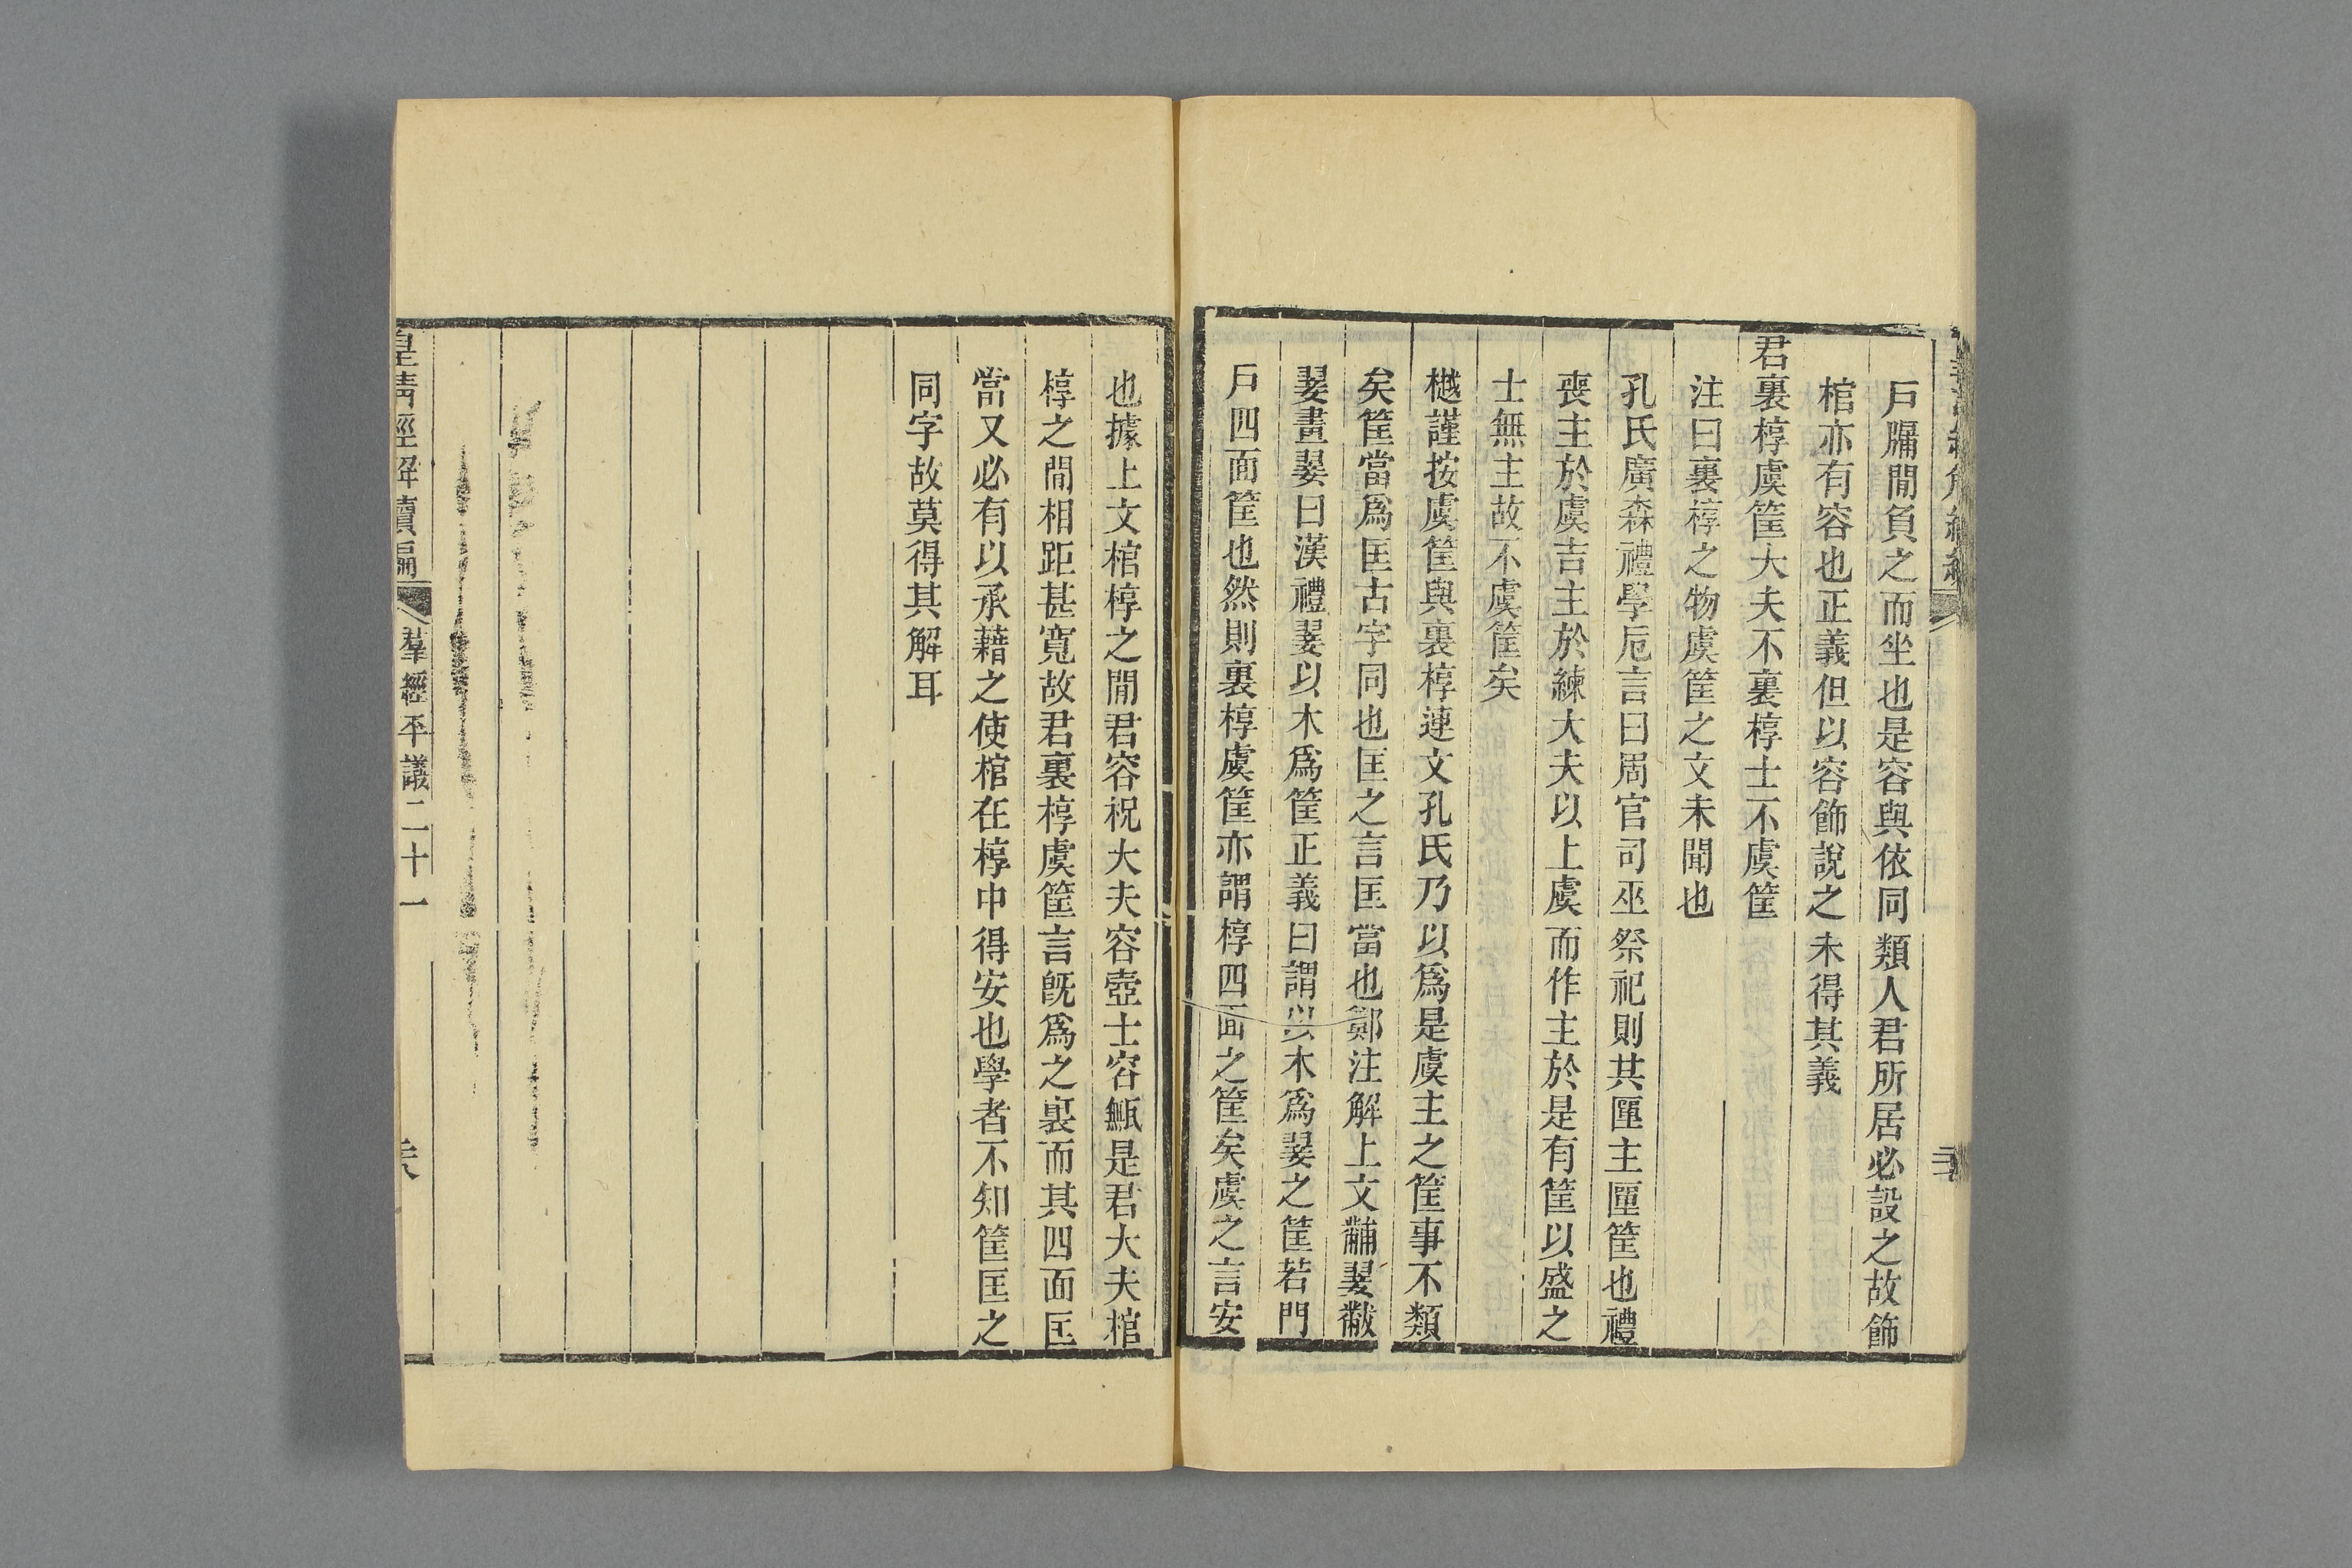 戶牖閒負之而坐也是容與依同類人君所居必設之故飾
棺亦有容也正義但以容飾說之未得其義
君裏椁虞筐大夫不裏椁士不虞筐
注曰裏椁之物虞筐之文未聞也
孔氏廣森禮學卮言曰周官司巫祭祀則其匰主匰筐也禮
喪主於虞吉主於練大夫以上虞而作主於是有筐以盛之
士無主故不虞筐矣
樾謹按虞筐與裏椁連文孔氏乃以爲是虞主之筐事不類
矣筐當爲匡古字同也匡之言匡當也鄭注解上文黼翣黻
翣畫翣曰漢禮翣以木爲筐正義曰謂以木爲翣之筐若門
戶四面筐也然則裏椁虞筐亦謂椁四面之筐矣虞之言安
也據上文棺椁之閒君容祝大夫容壺士容甒是君大夫棺
椁之閒相距甚寬故君裏椁虞筐言旣爲之裏而其四面匡
當又必有以承藉之使棺在椁中得安也學者不知筐匡之
同字故莫得其解耳
皇清經解續編
羣經平議二十一